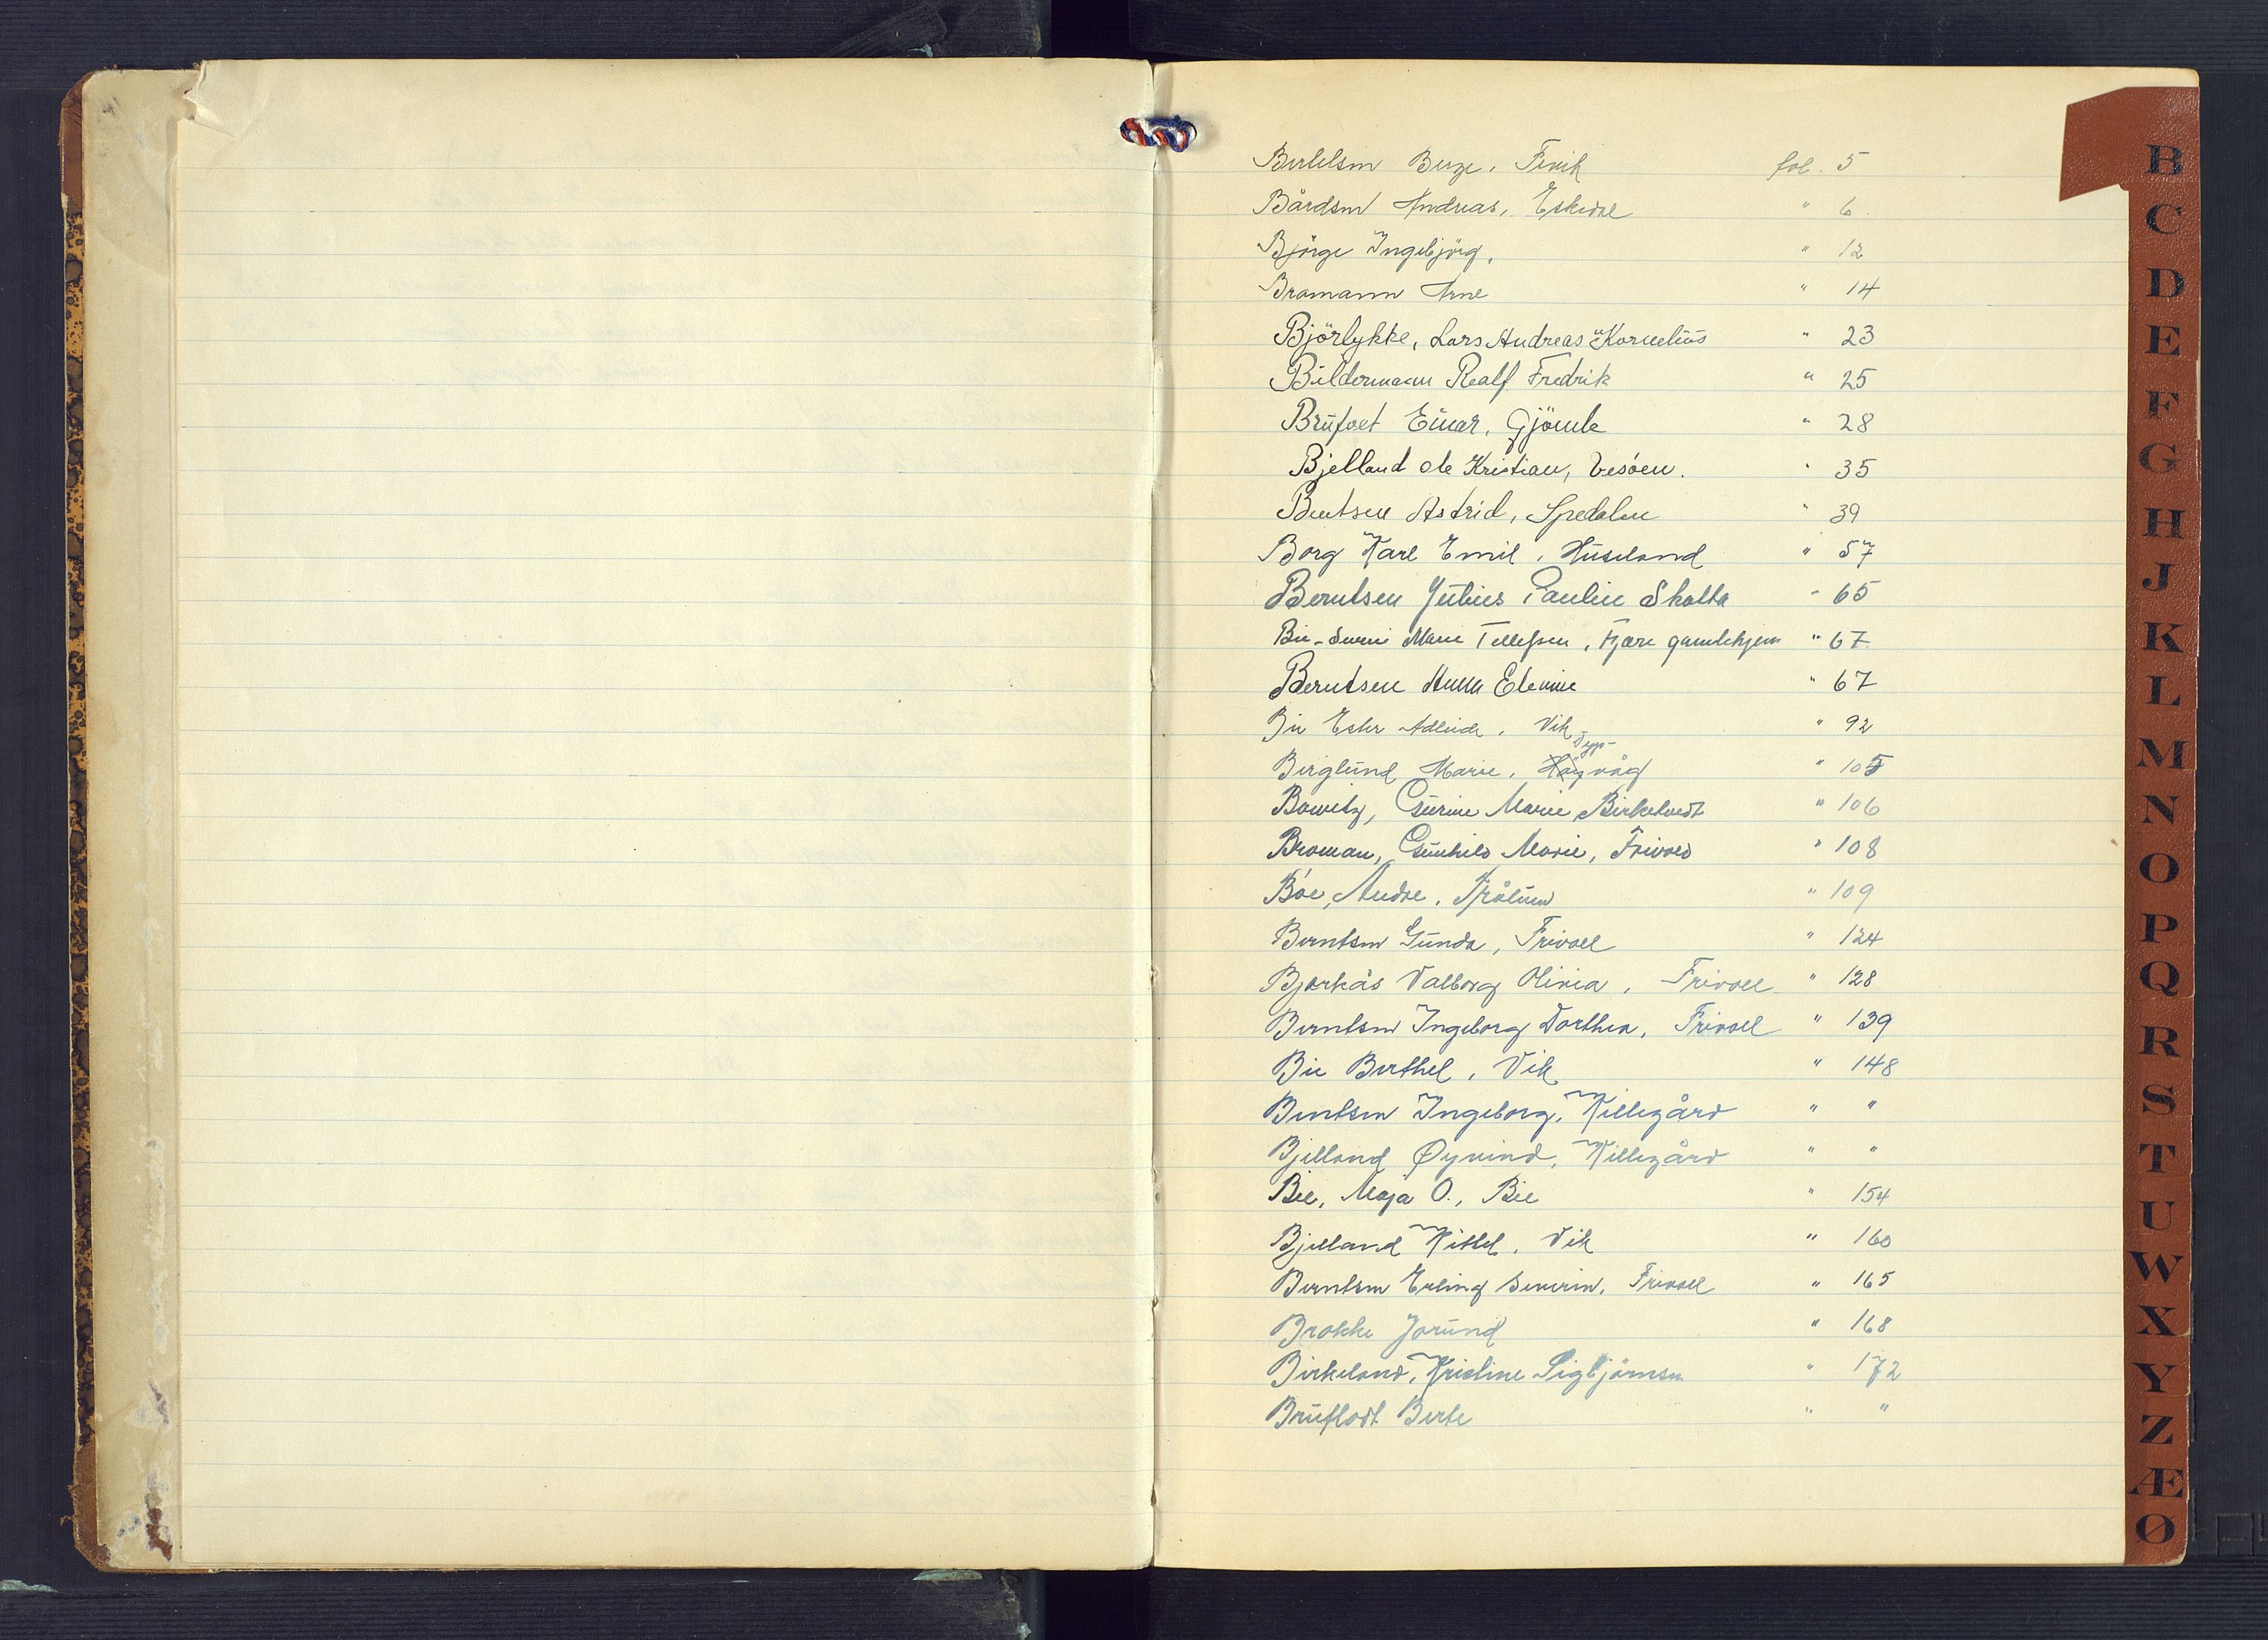 Bertelsen Berge, Fevik fol. 5
Bårdsen Andreas, Eskedal " 6
Bjørge Ingebjörg, " 12
Bramann Arne " 14
Björlykke, Lars Andreas Kornelius " 23
Buldermann Realf Fredrik " 25
Brufoet Einar, Gjömle " 28
Bjelland Ole Kristian, Vesöen. " 35
Bentsen Astrid, Spedalen " 39
Borg Karl Emil, Huseland " 57
Berntsen Julius Paulin Skolta " 65
Bie-Sveni Marie Tellefsen, Fjære gamlehjem " 67
Berntsen Anna Elevine " 67
Bie Ester Adleide, Vik " 92
Berglund Marie, Dyp-våg " 105
Bowitz, Gurine Marie Birketvedt " 106
Broman, Gunhild Marie, Frivold " 108
Böe, Andre, Trålum " 109
Berntsen Gunda, Frivoll " 124
Bjorkås Valborg Olivia, Frivoll " 128
Berntsen Ingeborg Dorthea, Frivoll " 139
Bie Berthel, Vik " 148
Bentsen Ingeborg, Killegård " "
Bjelland Øyvind, Killegård " "
Bie, Maja O., Bie " 154
Bjelland Kittel, Vik " 160
Berntsen Erling Severin, Frivoll " 165
Brokke Jorund " 168
Birkeland, Kristine Sigbjörnsen " 172
Bruflodt Berte " "
B
C
D
E
F
G
H
J
K
L
M
N
O
P
Q
R
S
T
U
W
X
Y
Z
Æ
Ø